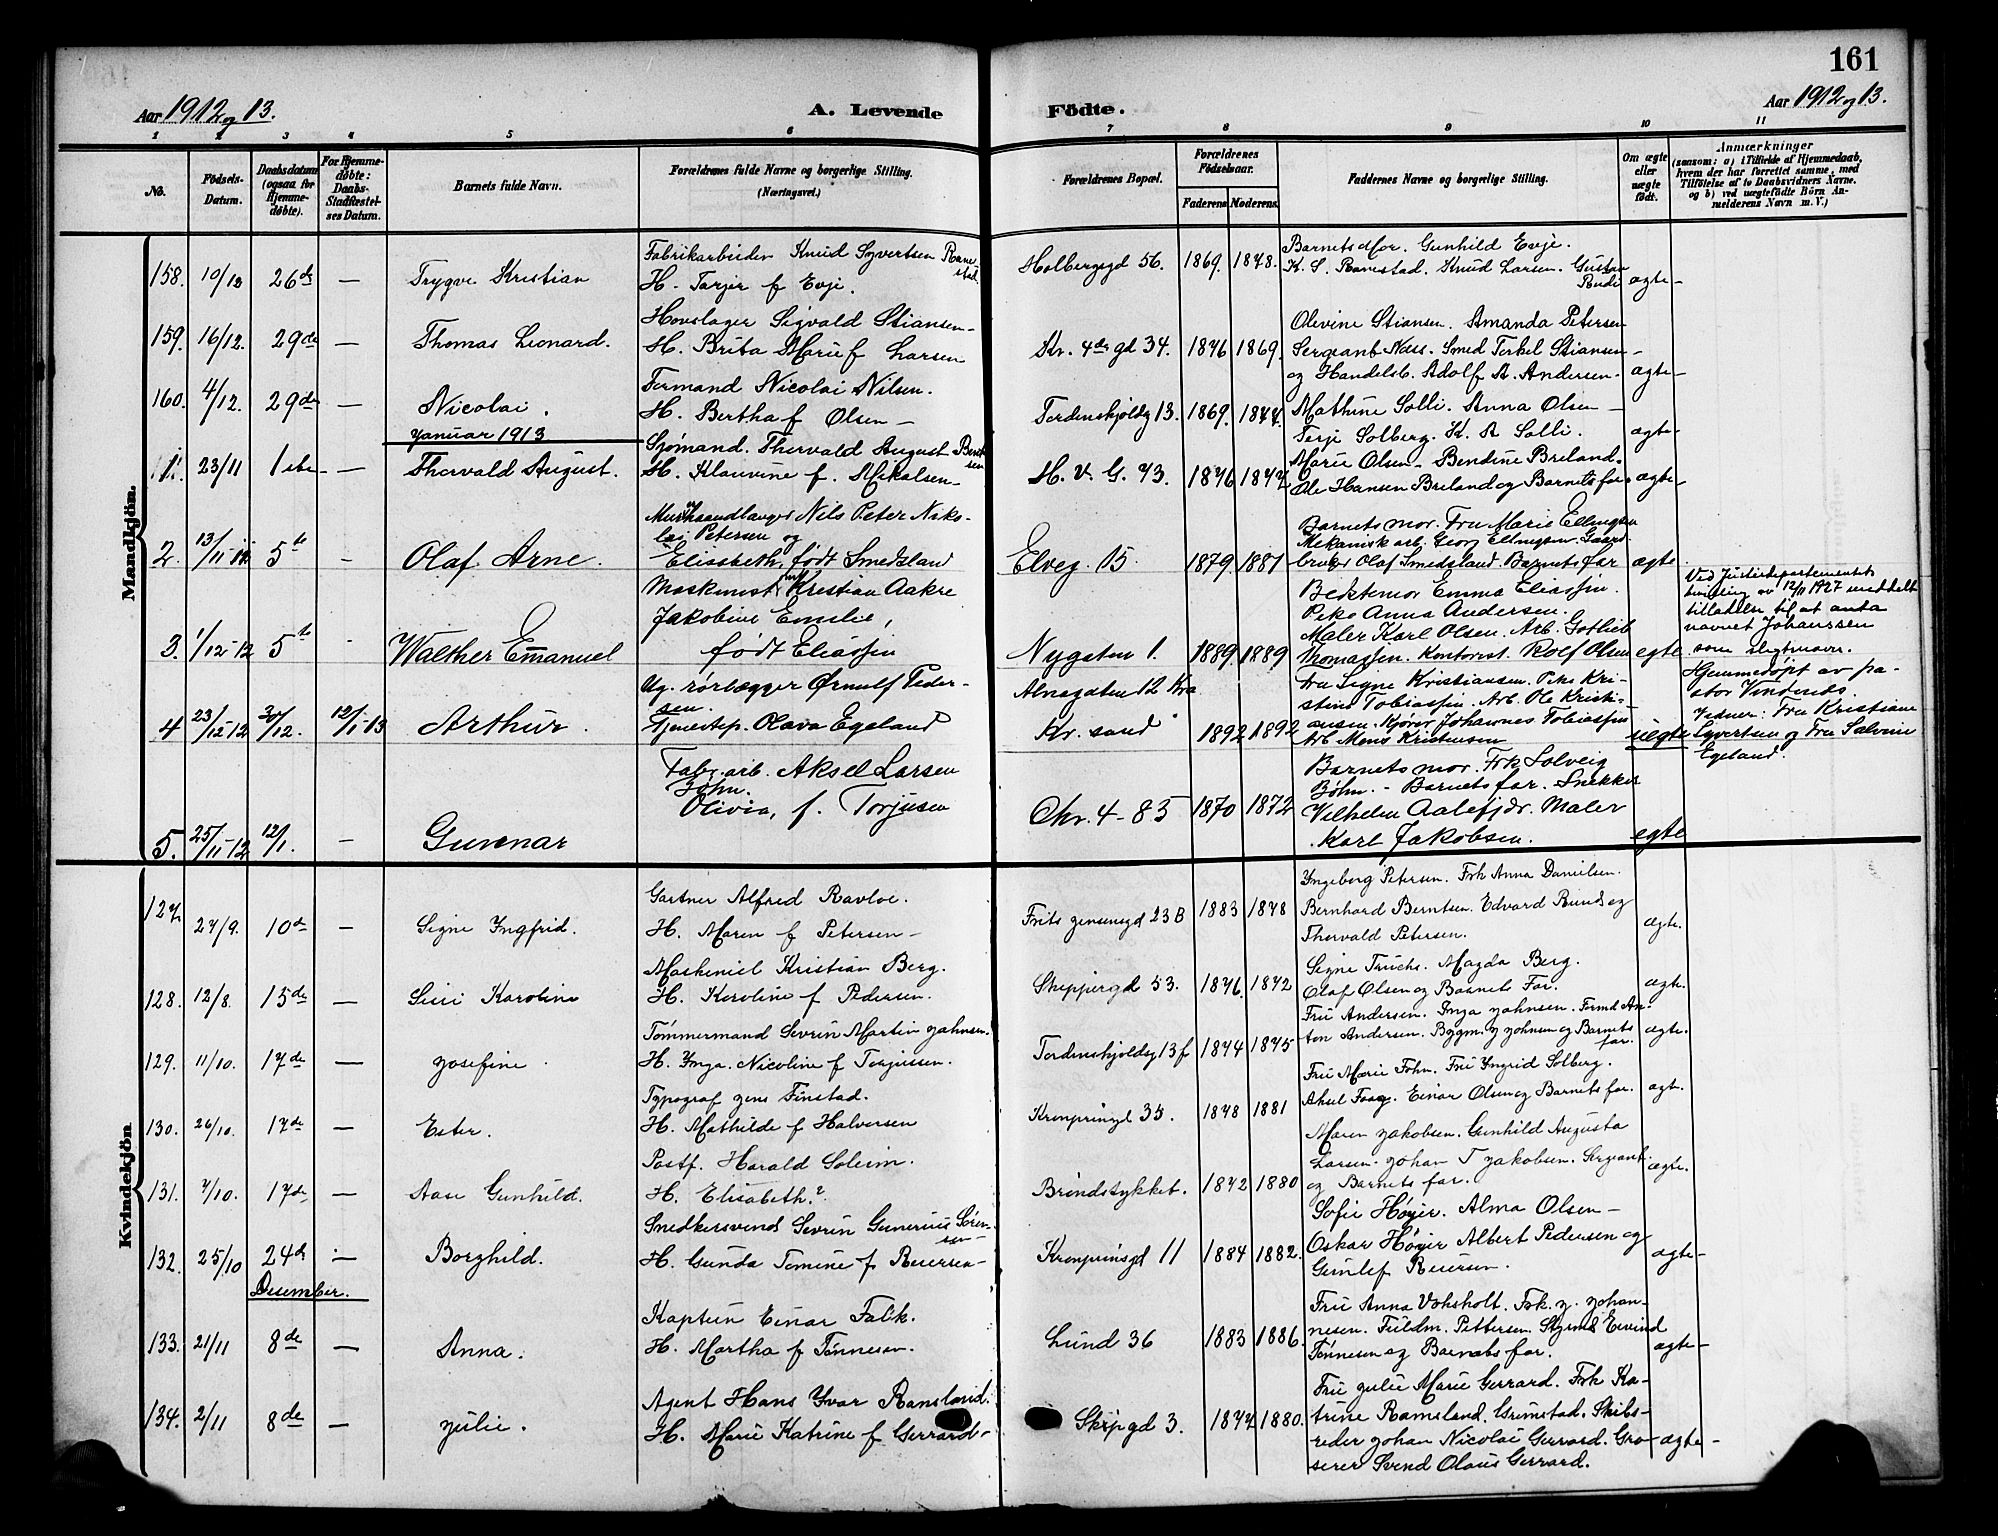 161
Aar 1912 og 13.
A. Levende
Födte.
Aar 1912 og 13.
1 2 3 4 5 6 7 8 9 10 11
No.
Födsels-
Datum.
Daabsdatum
(ogsaa for
Hjemme-
döbte).
For Hjemme-
döbte:
Daabs-
Stadfæstel-
ses Datum.
Barnets fulde Navn.
Forældrenes fulde Navne og borgerlige Stilling.
(Næringsvei.)
Forældrenes Bopæl.
Forældrenes
Födselsaar.
Faderens Moderens.
Faddernes Navne og borgerlige Stilling.
Om ægte
eller
uægte
födt.
Anmærkninger
(saasom: a) i Tilfælde af Hjemmedaab,
hvem der har forrettet samme, med
Tilföielse af to Daabsvidners Navne.
og b) ved uægtefödte Börn An-
melderens Navn m. V.)
Mandkjön.
158. 10/12 26de — Trygve Kristian
Fabrikarbeider Knud Syvertsen Rane-
stad.
H. Tarjer f Evje.
Holbergsgd 56. 1869. 1878.
Barnets Mor. Gunhild Evje.
K. S. Ranestad. Knud Larsen. Gustav
Rudi
ægte-
159. 16/12. 29de — Thomas Leonard.
Hovslager Sigvald Stiansen-
H. Brita Marie f Larsen
Kr. 4de gd 34. 1876 1869.
Olevine Stiansen. Amanda Petersen
Sergeant Næss. Smed Terkel Stiansen-
og Handelsb. Adolf A. Andersen.
ægte-
160. 4/12. 29de — Nicolai.
Formand Nicolai Nilsen.
H. Bertha f Olsen —
Tordenskjoldg 13. 1869. 1877.
Mathine Solli. Anna Olsen —
Terje Solberg. K. A Solli.
ægte-
Januar 1913
1. 23/11 1ste — Thorvald August.
Sjømand. Thorvald August Bernt-
sen
H. Klauvine f. Mikalsen-
H. V. G. 73. 1876 1877
Marie Olsen- Bendine Breland-
Ole Hansen Breland og Barnets far.
ægte-
2. 13/11-12. 5te - Olaf Arne.
Murhaandlanger Nils Peter Niko-
lai Petersen og
Elissbeth, født Smedsland
Elveg. 15. 1879. 1881
Barnets mor. Fru Marie Ellingsen
Mekanisk arb. Georg Ellingsen. Gaard-
bruger Olaf Smedsland. Barnets far
ægte.
3. 1/12-12 5te - Walther Emanuel
Maskinist Kristian Aakre
Jakobine Emelie,
født Eliassen
Nygaten 1. 1889. 1889.
Bedstemor Emma Eliassen
Pike Anna Andersen.
Maler Karl Olsen. Arb. Gotlieb
Thomassen. Kontorist. Rolf Olsen
egte
Ved Justisdepartementets
bevilling av 12/11 1927 meddelt
tilladelse til at anta
navnet Johanssen
som slegtsnavn.
4 23/12-12 30/12. 12/1-13 Arthur.
Ug. rørlægger Ørnulf Peder-
sen.
Tjenestep. Olava Egeland
Almagaten 12 Kra
Kr. sand 1892 1892
Fru Signe Kristiansen. Pike Kri-
stine Tobiassen. Arb. Ole Kristi-
ansen. Kjører Johannes Tobiassen
Arb. Mons Kristensen
uegte
Hjemmedøpt av pa-
stor Vindenes.
Vidner: Fru Kristiane
Syvertsen og Fru Salvine
Egeland.
5. 25/11-12 12/1. — Gunnar
Fabr. arb. Aksel Larsen
Bøhn.
Olivia, f. Torjusen
Chr. 4-85 1870 1872
Barnets mor. Frk Solveig
Bøhn.- Barnets far. Snekker
Vilhelm Aalefjær. Maler
Karl Jakobsen.
egte
Kvindekjön
127. 27/9. 10de — Signe Ingfrid.
Gartner Alfred Ravloe.
H. Maren f Petersen-
Frits Jensensgd 23B 1883 1878
Ingeborg Petersen. Frk Anna Danielsen.
Bernhard Berntsen. Edvard Rund og
Thorvald Petersen.
ægte.
128. 12/8. 15de — Siri Karoline
Maskinist Kristian Berg.
H. Karoline f Pedersen.
Skippergd 53. 1876. 1872
Signe Fuchs. Magda Berg.
Olaf Olsen og Barnets Far.
ægte.
129. 11/10. 17de — Josefine.
Tømmermand Sevrin Martin Johnsen.
H. Inga. Nicoline f Torjussen.
Tordenskjoldsg 13f 1874 1875
Fru Andersen. Inga Johnsen. Formd An-
ton Andersen. Bygm. J Johnsen og Barnets
far.
ægte.
130. 26/10. 17de — Ester.
Typograf Jens Finstad.
H. Mathilde f Halvorsen
Kronprinsgd 35. 1878 1881
Fru Marie Fohn. Fru Ingrid Solberg.
Aksel Faag. Einar Olsen og Barnets far.
ægte.
131. 7/10. 17de — Aase Gunhild.
Postf. Harald Soleim.
H. Elisabeth?
Brøndstykket. 1872 1880
Maren Jakobsen. Gunhild Augusta
Larsen. Johan T Jakobsen. Sergeant.
og Barnets far.
ægte.
132. 25/10 24de — Borghild.
Snedkersvend Sevrin Gunerius Søren-
sen-
H. Gunda Tomine f Reiersen-
Kronprinsgd 11 1884 1882.
Sofie Høyer. Alma Olsen-
Oskar Høyer Albert Pedersen og
Gunlef Reiersen.
ægte-
Desember.
133. 21/11 8de — Anna.
Kaptein Einar Falk.
H. Martha f Tønnesen.
Lund 36 1883 1886.
Fru Anna Voksholt. Frk. J. Johan-
nesen. Fuldm. Pettersen. Styrmd Eivind
Tønnesen og Barnets far.
ægte-
134. 2/11 8de — Julie.
Agent Hans Ivar Ramsland.
H. Marie Katrine f Gerrard-
Skipgd 3. 1877 1880.
Fru Julie Marie Gerrard. Frk Ka-
trine Ramsland. Grimstad. Skibs-
reder Johan Nicolai Gerrard. Gro-
serer Svend Olaus Gerrard.
ægte-